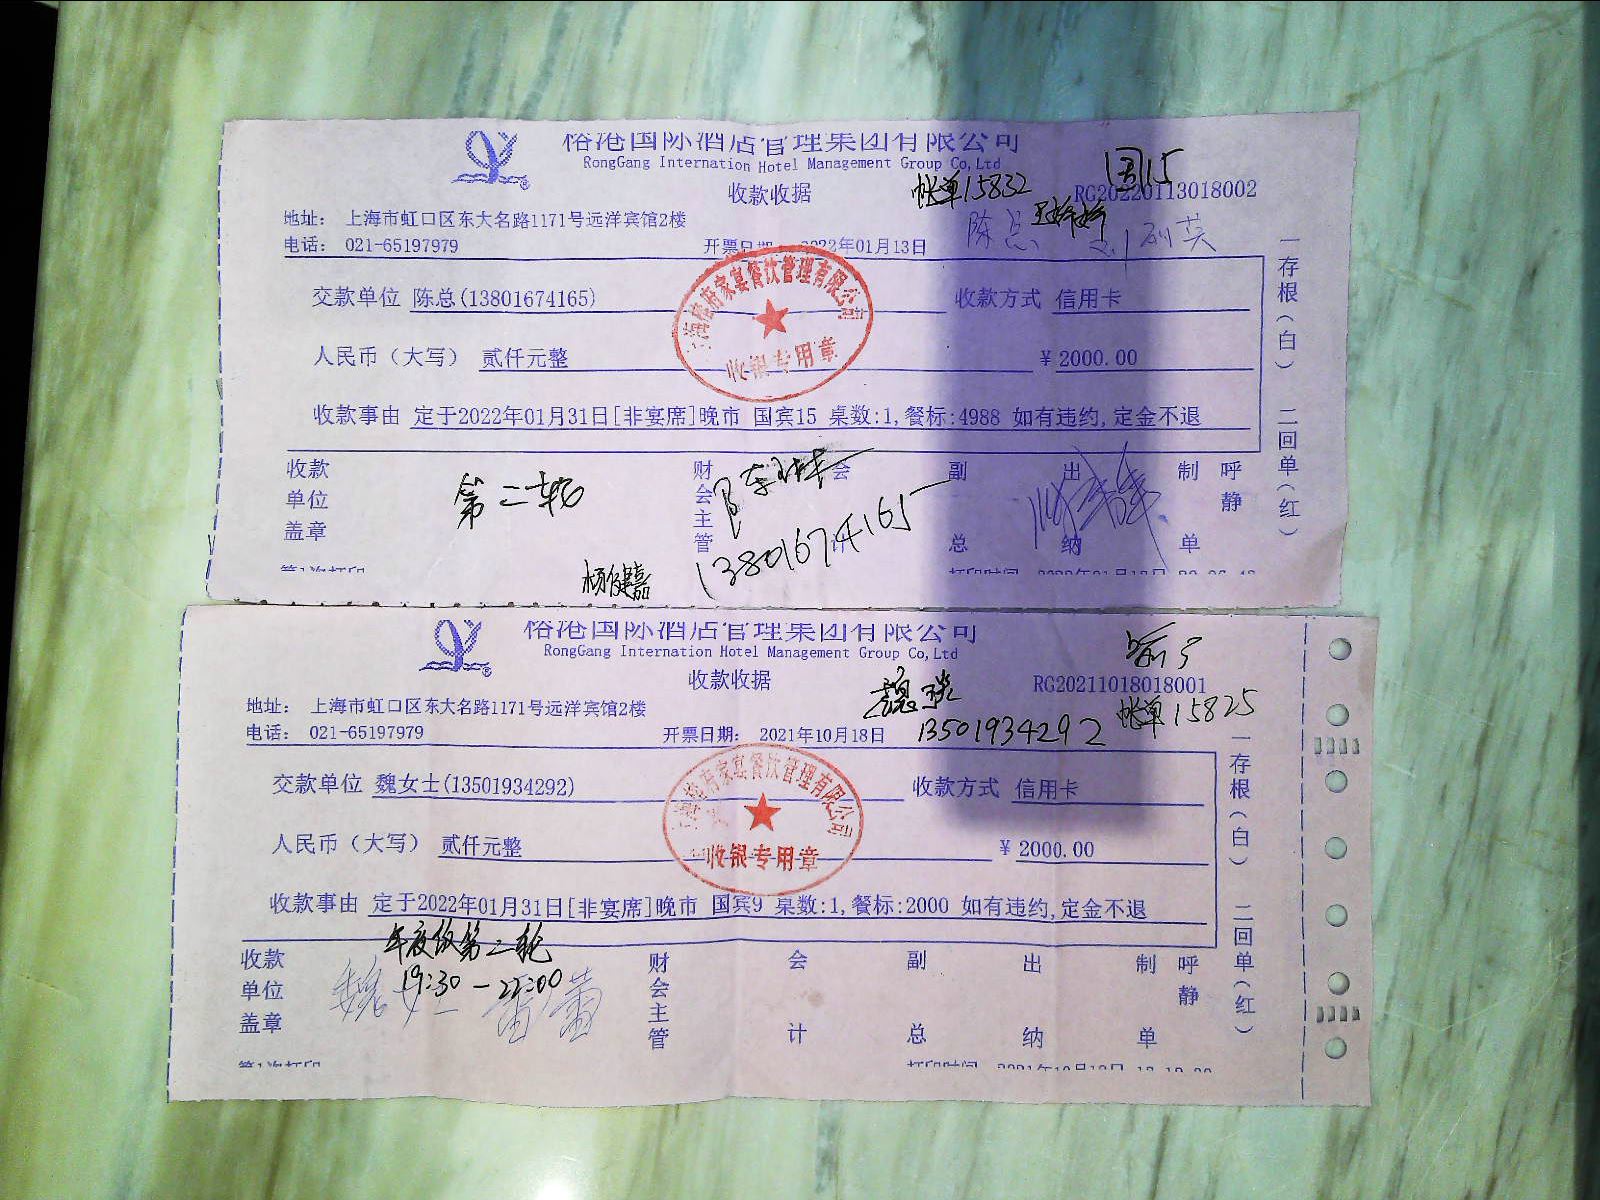 榕港国际酒店管理集团有限公司
RongGang Internation Hotel Management Group Co,Ltd
收款收据
帐单15832
国15
RG20220113018002
地址： 上海市虹口区东大名路1171号远洋宾馆2楼
陈总
电话： 021-65197979
开票日期： 2022年01月13日
交款单位 陈总(13801674165)
收款方式 信用卡
人民币（大写） 贰仟元整
￥2000.00
收款事由 定于2022年01月31日[非宴席]晚市 国宾15 桌数:1,餐标:4988 如有违约,定金不退
一存根(白) 二回单(红)
家宴餐饮管理有限公司
收银专用章
收款单位盖章
第二轮
财会主管
会计
副总
出纳
制单
呼静
13801674165
杨健嘉
第1次打印
打印时间
榕港国际酒店管理集团有限公司
RongGang Internation Hotel Management Group Co,Ltd
收款收据
RG20211018018001
帐单15825
地址： 上海市虹口区东大名路1171号远洋宾馆2楼
电话： 021-65197979
开票日期： 2021年10月18日
13501934292
交款单位 魏女士(13501934292)
收款方式 信用卡
人民币（大写） 贰仟元整
￥2000.00
收款事由 定于2022年01月31日[非宴席]晚市 国宾9 桌数:1,餐标:2000 如有违约,定金不退
一存根(白) 二回单(红)
家宴餐饮管理有限公司
收银专用章
年夜饭第二轮
19:30-22:00
收款单位盖章
魏女士
财会主管
会计
副总
出纳
制单
呼静
第1次打印
打印时间